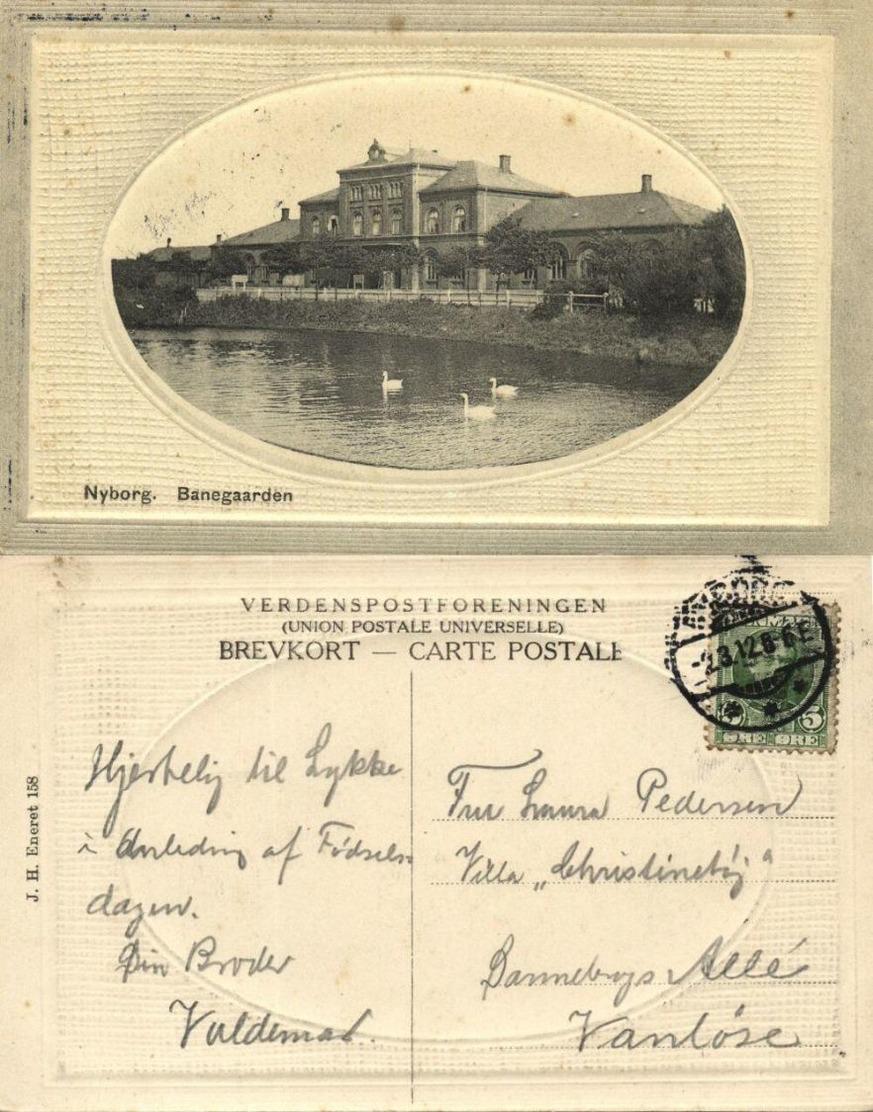 Nyborg. Banegaarden
VERDENSPOSTFORENINGEN
(UNION POSTALE UNIVERSELLE)
BREVKORT — CARTE POSTALE
NYBORG
-2.3.12.8-6E
5 5
ØRE ØRE
J. H. Eneret 158
Hjertelig til Lykke
i Anledning af Fødsels-
dagen.
Din Broder
Valdemar.
Fru Laura Pedersen
Villa „Christinehøj"
Dannebrogs Allé
Vanløse